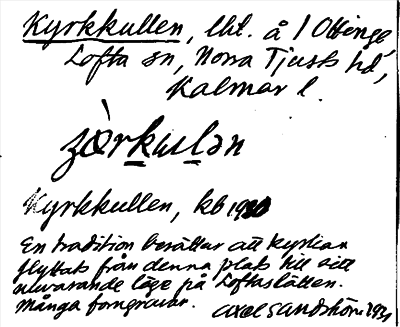 Kyrkkullen, lht. å 1 Ottinge,
Lofta sn, Norra Tjusts hd,
Kalmar l.
Kyrkkullen, kb
En tradition berättar att kyrkan
flyttats från denna plats till sitt
nuvarande läge på Loftaslätten.
Många forngravar. Axel Sandström